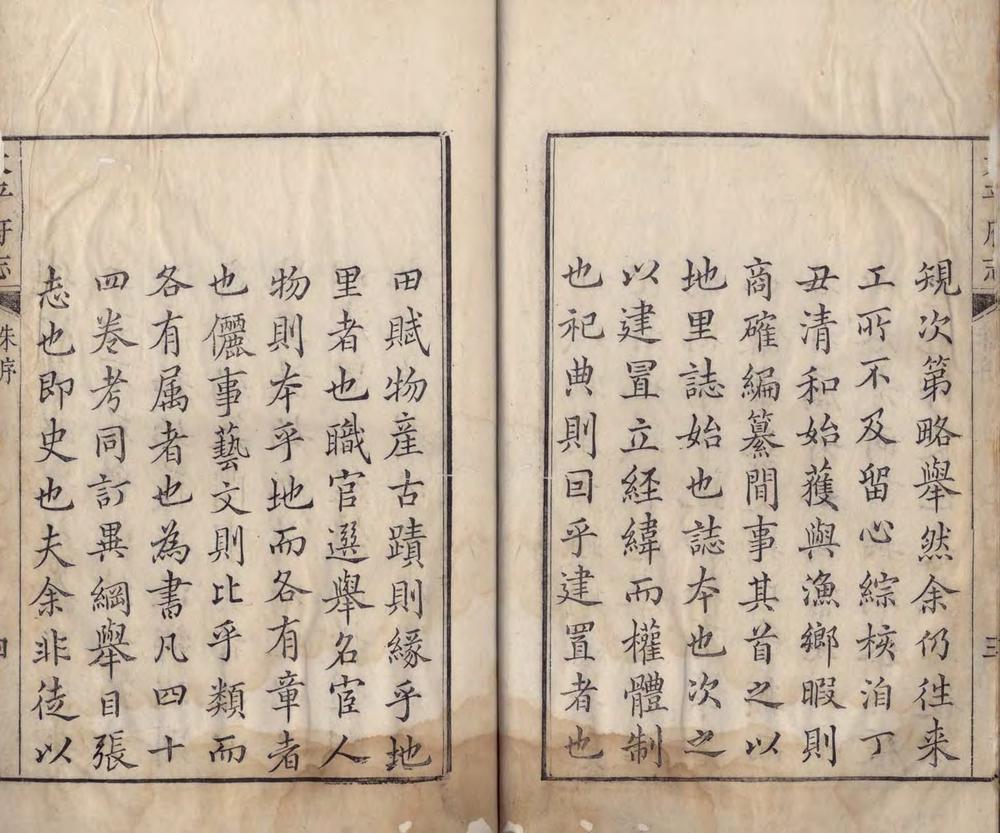 太平府志
三
規次第略舉然余仍徃来
工所不及留心綜核洎丁
丑清和始獲與漁鄉暇則
商確編纂間事其首之以
地里誌始也誌夲也次之
以建置立経緯而權體制
也祀典則因乎建置者也
田賦物産古蹟則緣乎地
里者也職官選舉名宦人
物則夲乎地而各有章者
也儷事藝文則比乎類而
各有属者也為書凡四十
四卷考同訂異綱舉目張
志也即史也夫余非徒以
太平府志
朱序
四